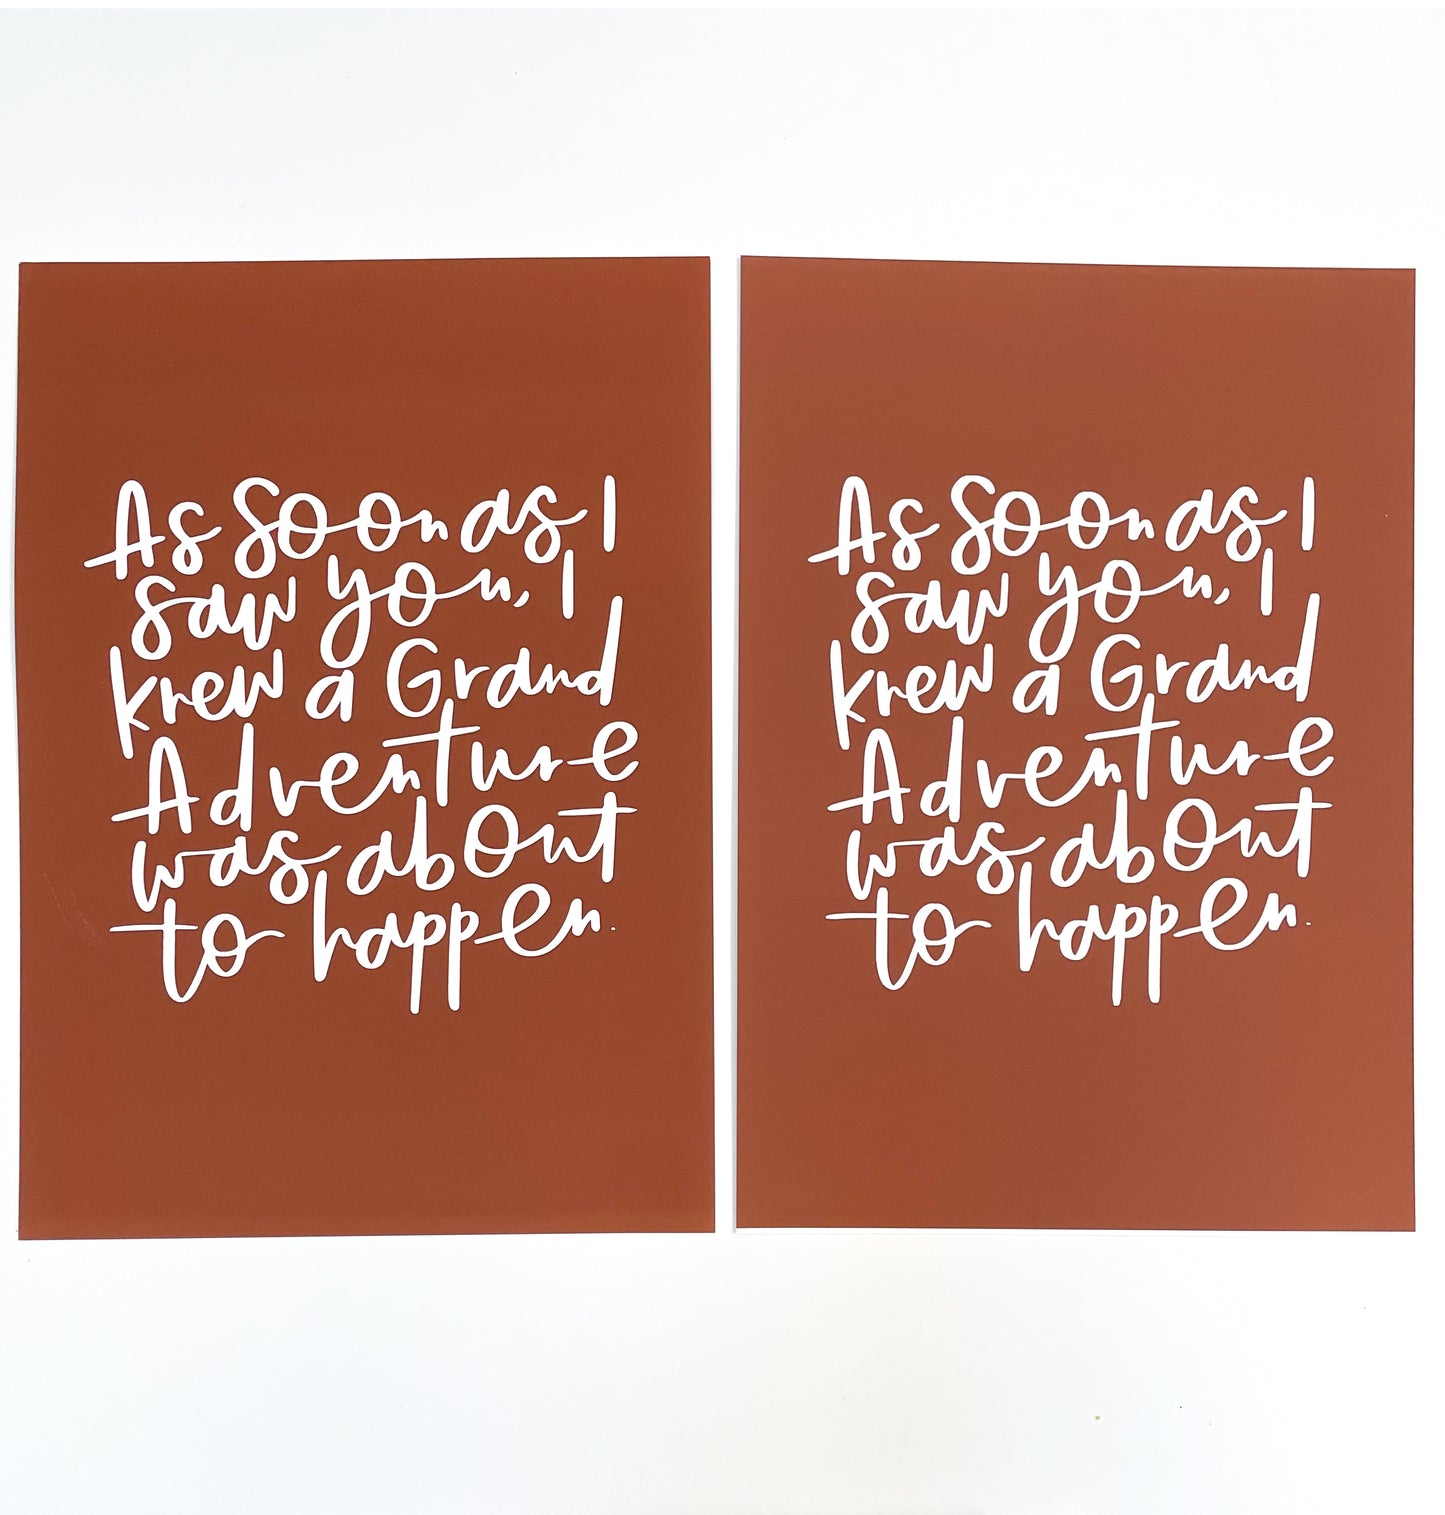 As Soon as I
saw you, I
knew a Grand
Adventure
was about
to happen.
As Soon as I
saw you, I
knew a Grand
Adventure
was about
to happen.